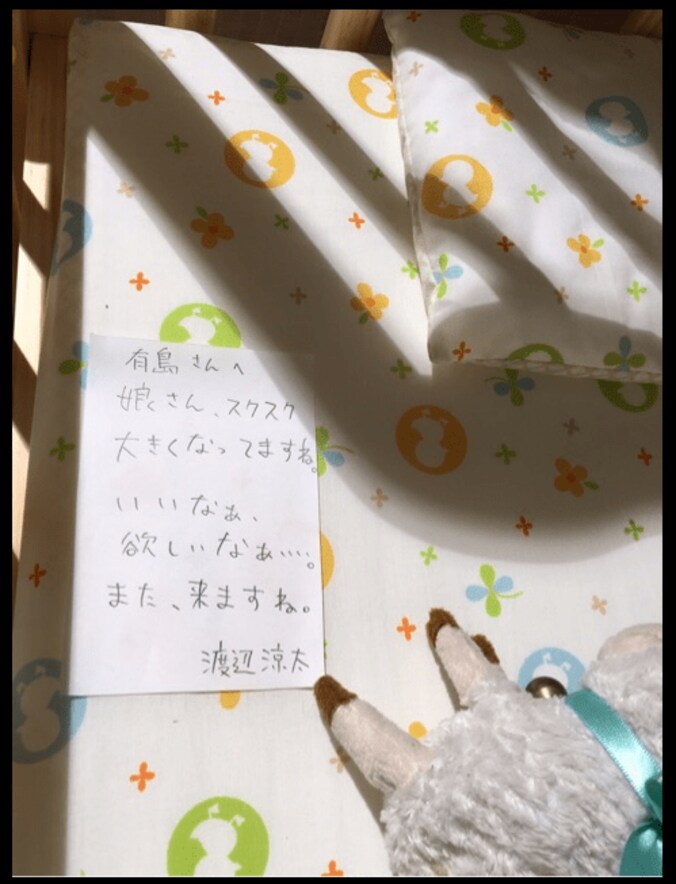 有島さんへ
娘さん、スクスク
大きくなってますね。
いいなぁ、
欲しいなぁ……。
また、来ますね。
渡辺涼太